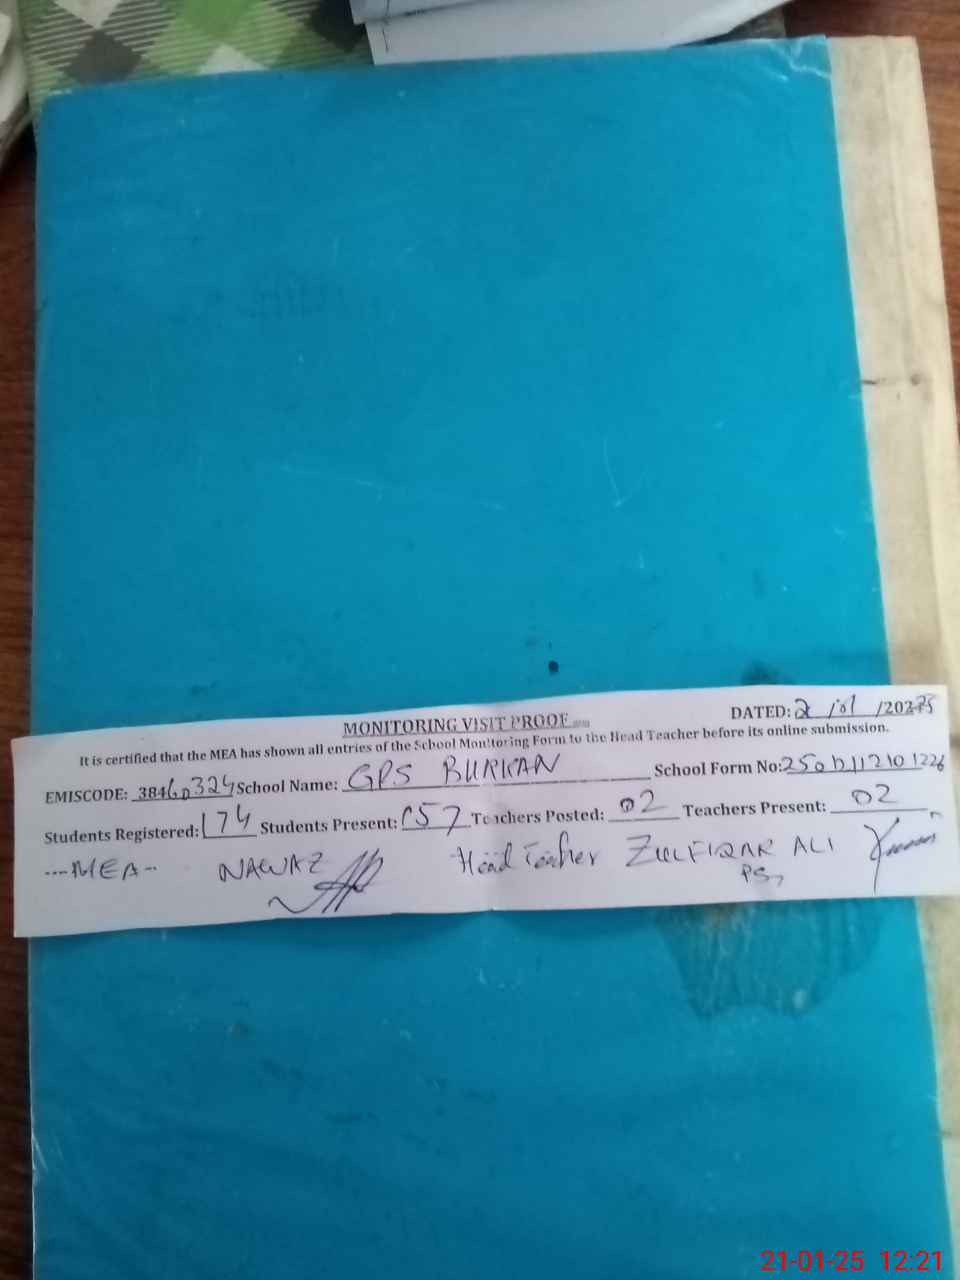 MONITORING VISIT PROOF
DATED: 2 /01 /2025
It is certified that the MEA has shown all entries of the School Monitoring Form to the Head Teacher before its online submission.
EMISCODE: 38460324 School Name: GPS BURKAN School Form No:
Students Registered: 174 Students Present: 157 Teachers Posted: 02 Teachers Present: 02
---MEA-- NAWAZ Head Teacher ZULFIQAR ALI
PST
21-01-25 12:21